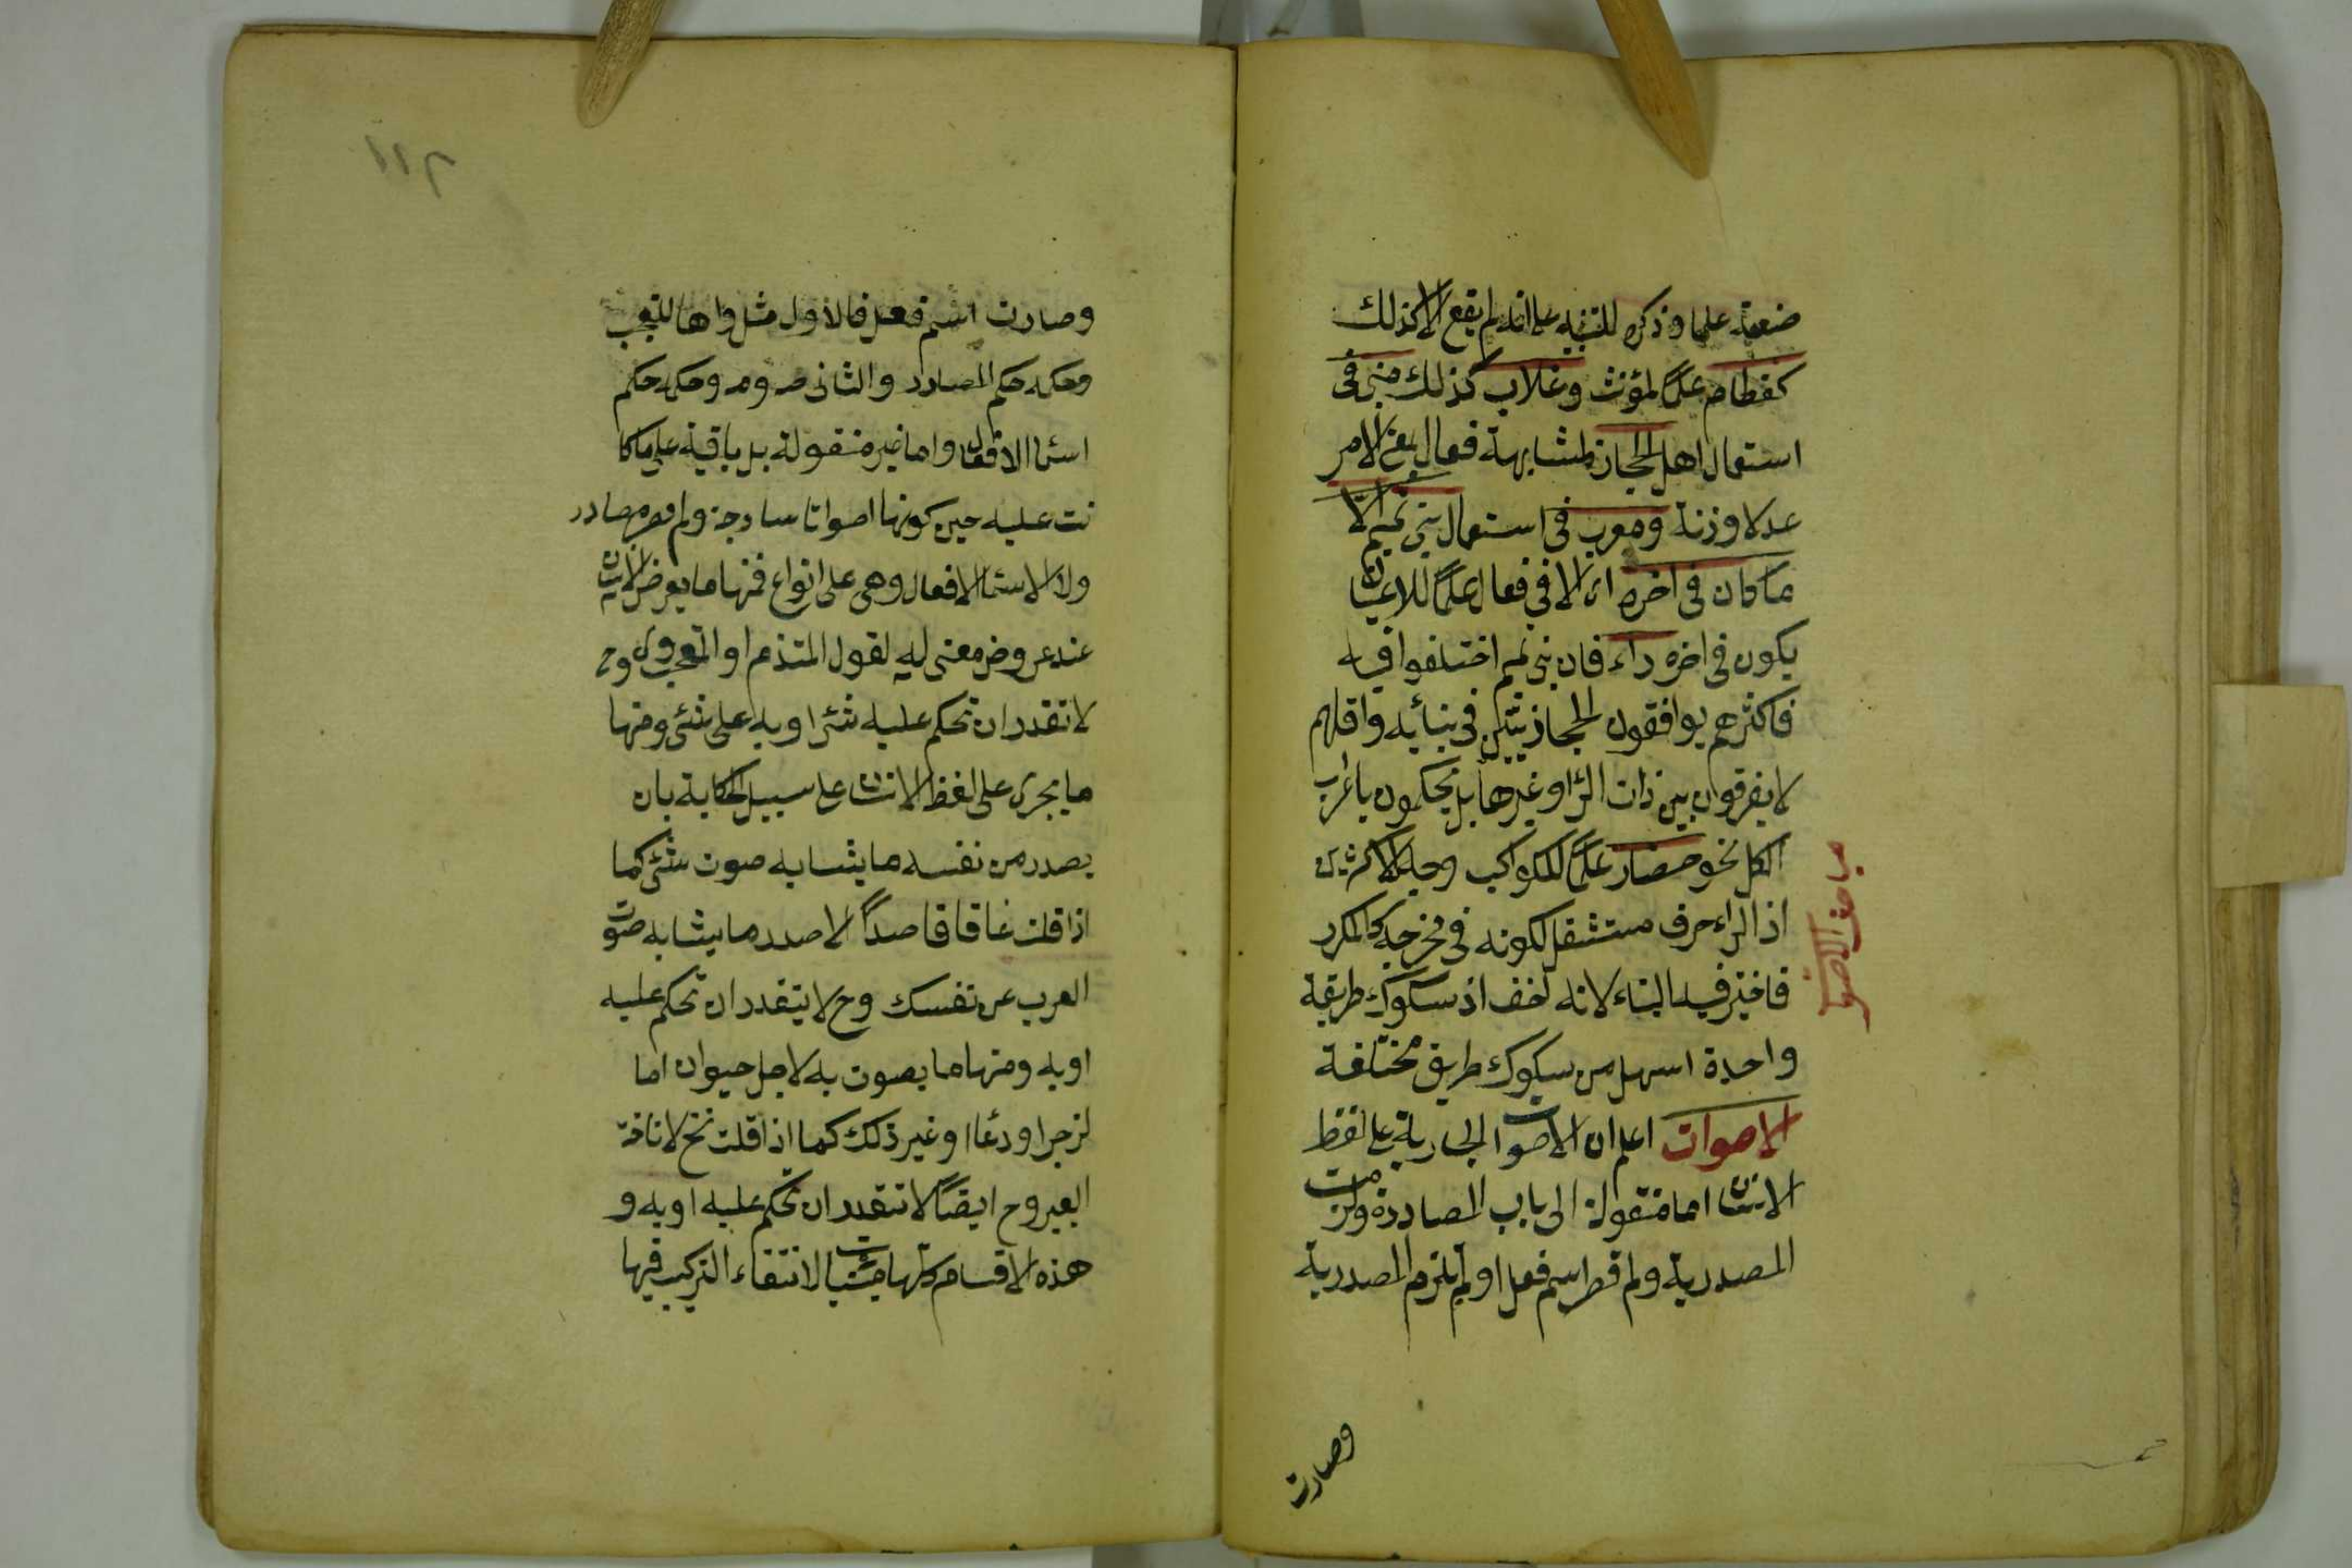 ضعفة علما وذكره للتنبيه على انه لم يقع الا كذلك
كقطام علمًا لمؤنث وغلاب كذلك مبنى فى
استعمال اهل الحجاز لمشابهة فعال بمعنى الامر
عدلا وزنة ومعرب فى استعمال بنى تميم الا
ما كان فى اخره اى الا فى فعال علمًا للاعيان
يكون فى اخره راء فان بنى تميم اختلفوا فيه
فاكثرهم يوافقون الحجازيين فى بنائه واقلهم
لا يفرقون بين ذات الراء وغيرها بل يحكمون باعراب
الكل نحو حضار علمًا للكواكب وجه الاكثرين
اذ الراء حرف مستثقل لكونه فى مخرجه كالمكرر
فاختير فيه البناء لانه اخف اذ سكوك طريقة
واحدة اسهل من سكوك طريق مختلفة
الاصوات اعلم ان الاصوات الجارية على لفظ
الانسان اما منقولة الى باب المصادر ولزمت
المصدرية ولم قصر اسم فعل او لم يلزم المصدرية
وصارت
مباحث الاصوات
٢١١
وصارت اسم فعل فالاول مثل واها للتعجب
وحكمه حكم المصادر والثانى صه ومه وحكمه حكم
اسماء الافعال واما غير منقولة بل باقية على ما كا
نت عليه حين كونها اصواتا ساذجة ولم قصر مصادر
ولا الاسماء الافعال وهى على انواع فمنها ما يعرض للانسان
عند عروض معنى له لقول المتندم او المتعجب وى وح
لا تقدر ان تحكم عليه شئ او به على شئ ومنها
ما يجرى على لفظ الانسان على سبيل الحكاية بان
يصدر من نفسه ما يشابه صوت شئ كما
اذا قلت غاق قاصدًا لاصدر ما يشابه صوت
الغراب عن نفسك وح لا يتقدر ان تحكم عليه
او به ومنها ما يصوت به لاجل حيوان اما
لزجر او دعاء او غير ذلك كما اذا قلت نخ لاناخة
البعير وح ايضًا لا تتقدر ان تحكم عليه او به و
هذه الاقسام كلها مبنيات لانتفاء التركيب فيها